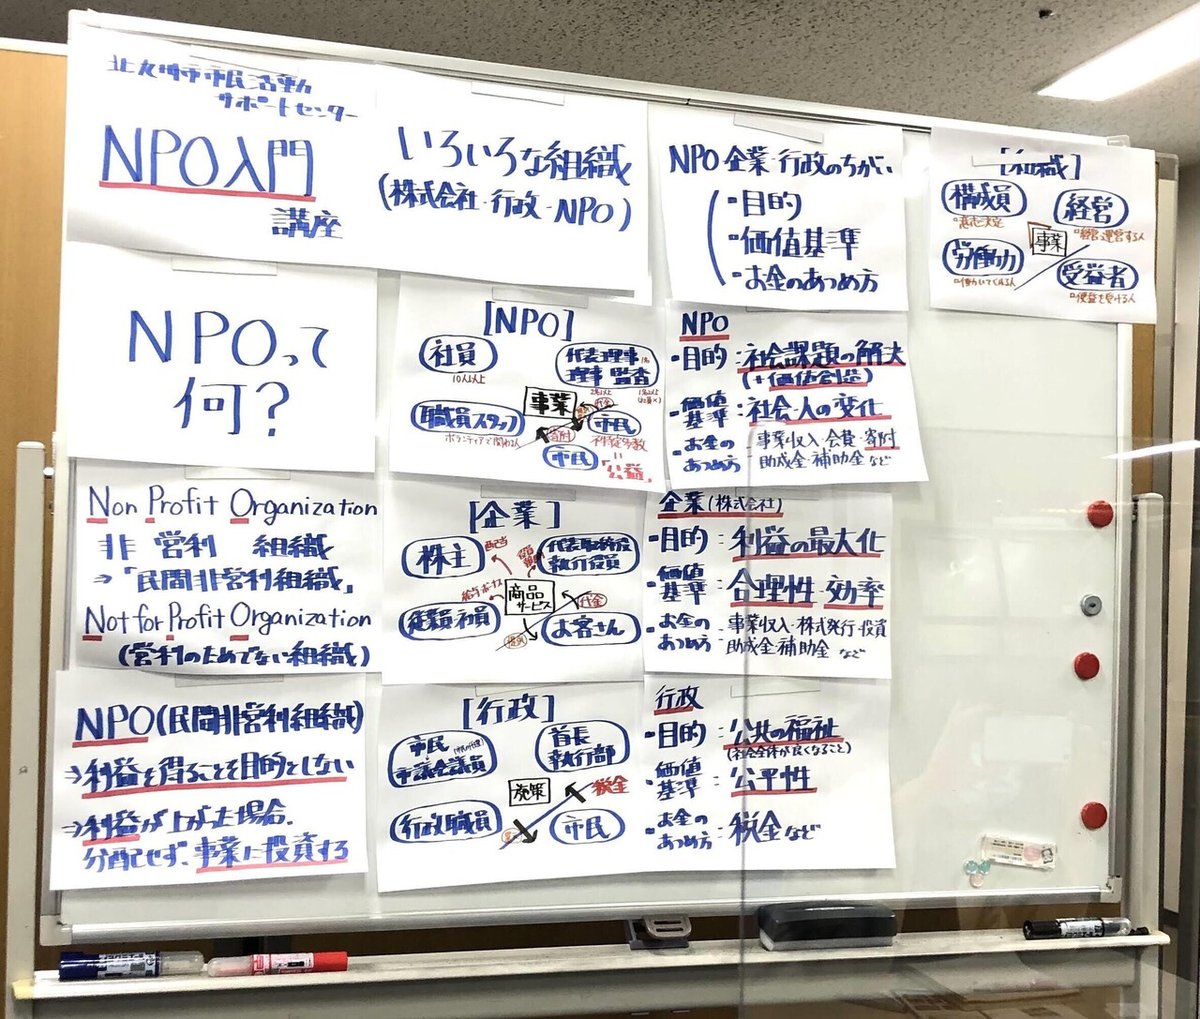 北九州市市民活動
サポートセンター
NPO入門
講座
いろいろな組織
(株式会社・行政・NPO)
NPO 企業・行政のちがい
・目的
・価値基準
・お金のあつめ方
[組織]
構成員
・意志決定
経営
・経営運営する人
事業
労働力
・働いてくれる人
受益者
・便益を受ける人
NPOって
何?
[NPO]
社員
10人以上
代表理事
理事 監査
事業
職員スタッフ
ボランティアで関わる人
市民
不特定多数
寄付
市民
「公益」
NPO
・目的:社会課題の解決
(+価値創造)
・価値
基準:社会・人の変化
・お金の
あつめ方:事業収入・会費・寄付
助成金・補助金など
Non Profit Organization
非 営利 組織
⇒「民間非営利組織」
Not for Profit Organization
(営利のためでない組織)
[企業]
株主
配当
代表取締役
執行役員
給与ボーナス
商品
サービス
代金
従業員・社員
お客さん
企業(株式会社)
・目的:利益の最大化
・価値
基準:合理性・効率
・お金の
あつめ方:事業収入・株式発行・投資
助成金・補助金 など
NPO(民間非営利組織)
⇒利益を得ることを目的としない
⇒利益が上がった場合、
分配せず、事業に投資する
[行政]
市民
市議会議員
首長
執行部
税金
行政職員
市民
行政
・目的:公共の福祉
(社会全体が良くなること)
・価値
基準:公平性
・お金の
あつめ方:税金など